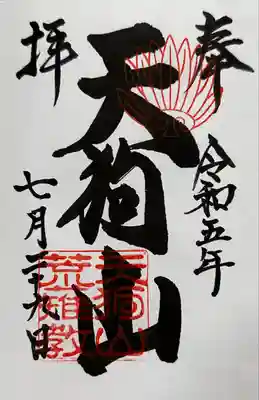 奉
拝
令和五年
天狗山
七月二十九日
天狗山
荒雄教